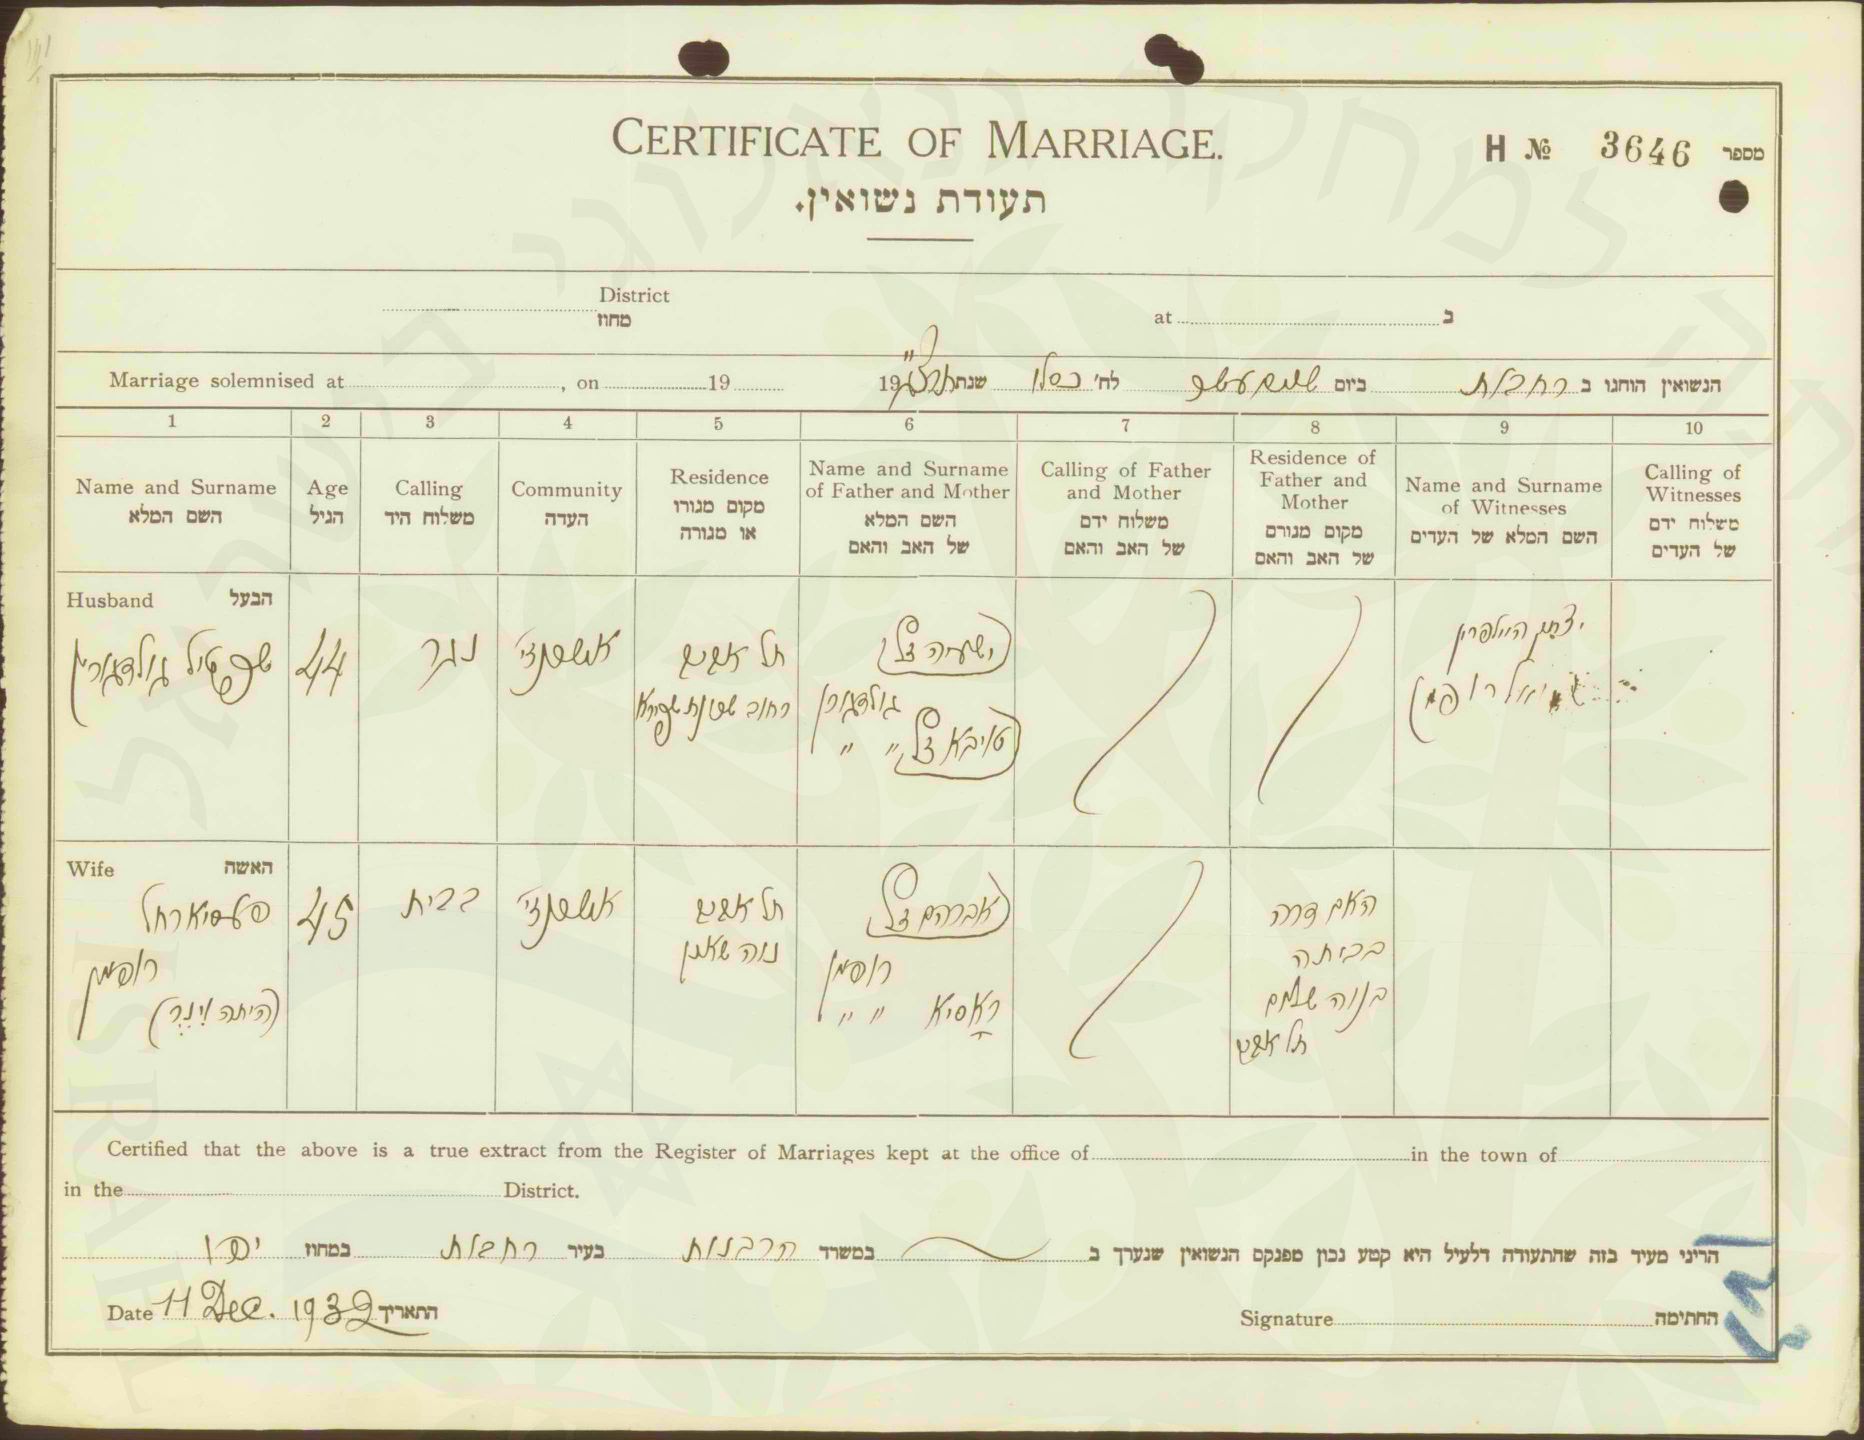 CERTIFICATE OF MARRIAGE.
H № 3646 מספר
תעודת נשואין.
District
מחוז
at ב
Marriage solemnised at , on 19
הנשואין הוחגו ב רחבות ביום לח' כסלו שנת תרצ"ג 19
1 2 3 4 5 6 7 8 9 10
Name and Surname
השם המלא
Age
הגיל
Calling
משלוח היד
Community
העדה
Residence
מקום מגורו
או מגורה
Name and Surname
of Father and Mother
השם המלא
של האב והאם
Calling of Father
and Mother
משלוח ידם
של האב והאם
Residence of
Father and
Mother
מקום מגורם
של האב והאם
Name and Surname
of Witnesses
השם המלא של העדים
Calling of
Witnesses
משלוח ידם
של העדים
Husband הבעל
44
נגר
אשכנזי
תל אביב
רחוב שכונת שפירא
ישעיה ז"ל
גולדהורן
טויבא ז"ל " "
יצחק היילפרין
רופמן
Wife האשה
פעסיא רחל
רופמן
45
בבית
אשכנזי
תל אביב
נוה שאנן
אברהם ז"ל
רופמן
ראסיא " "
האם דרה
בביתה
בנוה שלום
תל אביב
Certified that the above is a true extract from the Register of Marriages kept at the office of in the town of
in the District.
הריני מעיד בזה שהתעודה דלעיל היא קטע נכון מפנקס הנשואין שנערך ב במשרד הרבנות בעיר רחבות במחוז יפו
Date 11 Dec. 1932 התאריך
Signature החתימה
ISRAEL